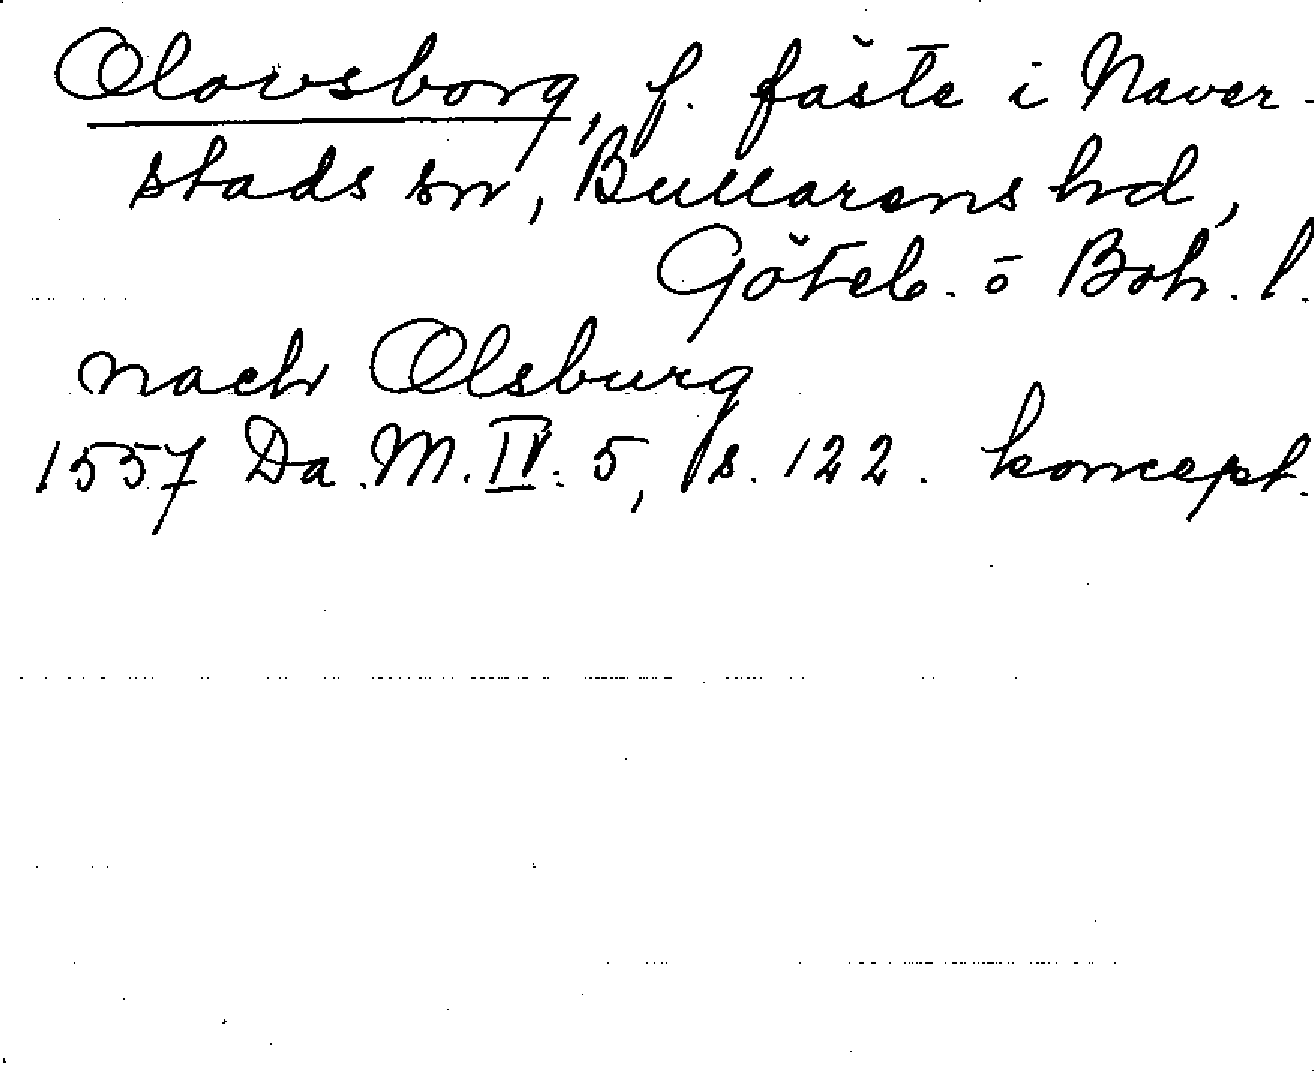 Olovsborg, f. fäste i Naver-
stads sn, Bullarens hd,
Göteb. o Boh. l.
nach Olsburg
1557 Da. M. IV. 5, s. 122. koncept.